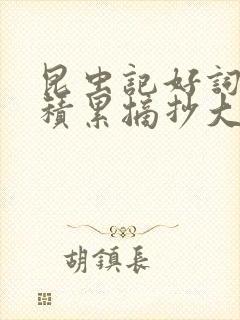 昆虫記好詞
積累摘抄大
胡鎮長